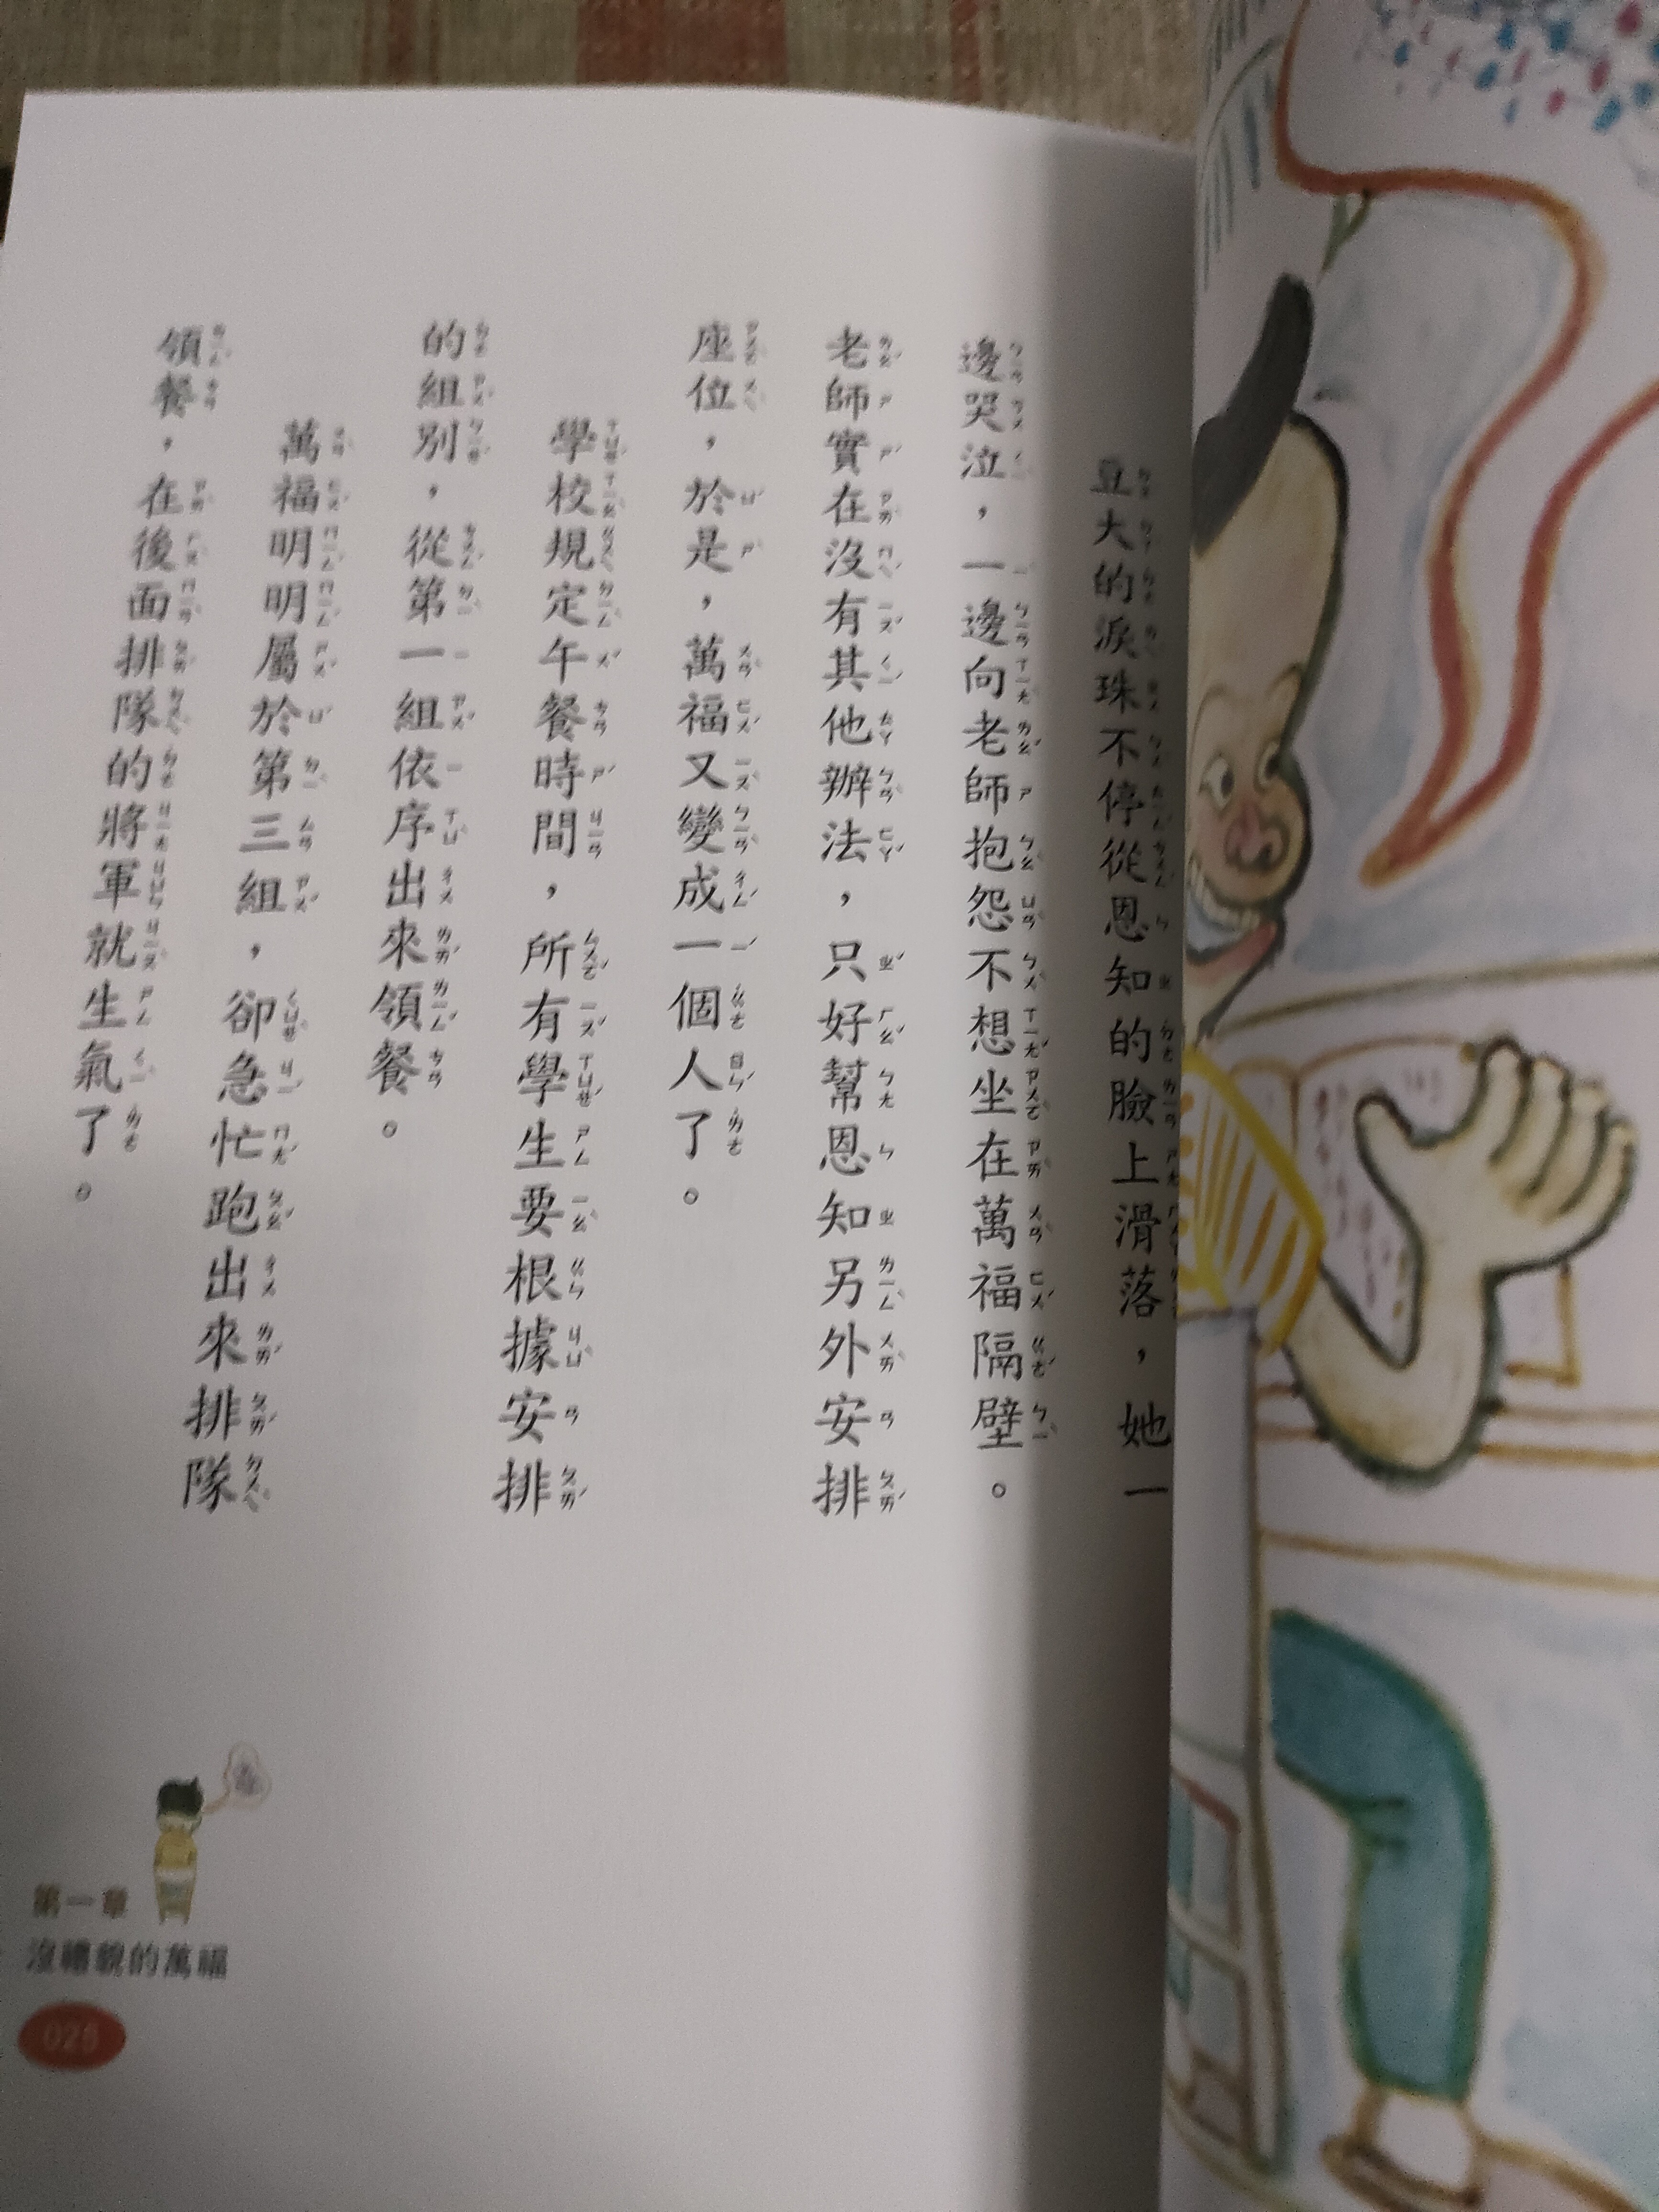 豆大的淚珠不停從恩知的臉上滑落，她一
邊哭泣，一邊向老師抱怨不想坐在萬福隔壁。
老師實在沒有其他辦法，只好幫恩知另外安排
座位，於是，萬福又變成一個人了。
學校規定午餐時間，所有學生要根據安排
的組別，從第一組依序出來領餐。
萬福明明屬於第三組，卻急忙跑出來排隊
領餐，在後面排隊的將軍就生氣了。
第一章
沒禮貌的萬福